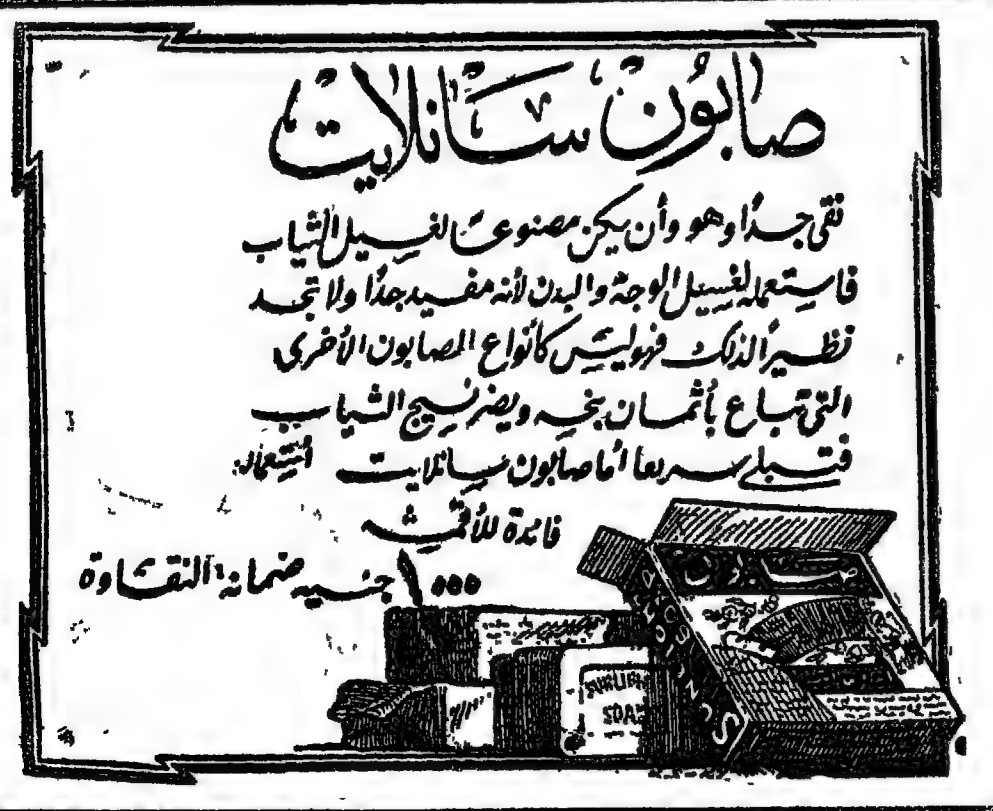 صابون سانلايت
نقي جدًا وهو وأن يكن مصنوعًا لغسيل الثياب
فاستعمله لغسيل الوجه والبدن لأنه مفيد جدًا ولا تجد
نظيرًا لذلك فهو ليس كأنواع الصابون الأخرى
التي تباع بأثمان بخسه ويضر نسيج الثياب
فتبلى سريعا أما صابون سانلايت أستعماله
فائدة للأقمشه
١٠٠٠ جنيه ضمانة النقاوة
SUNLIGHT
SOAP